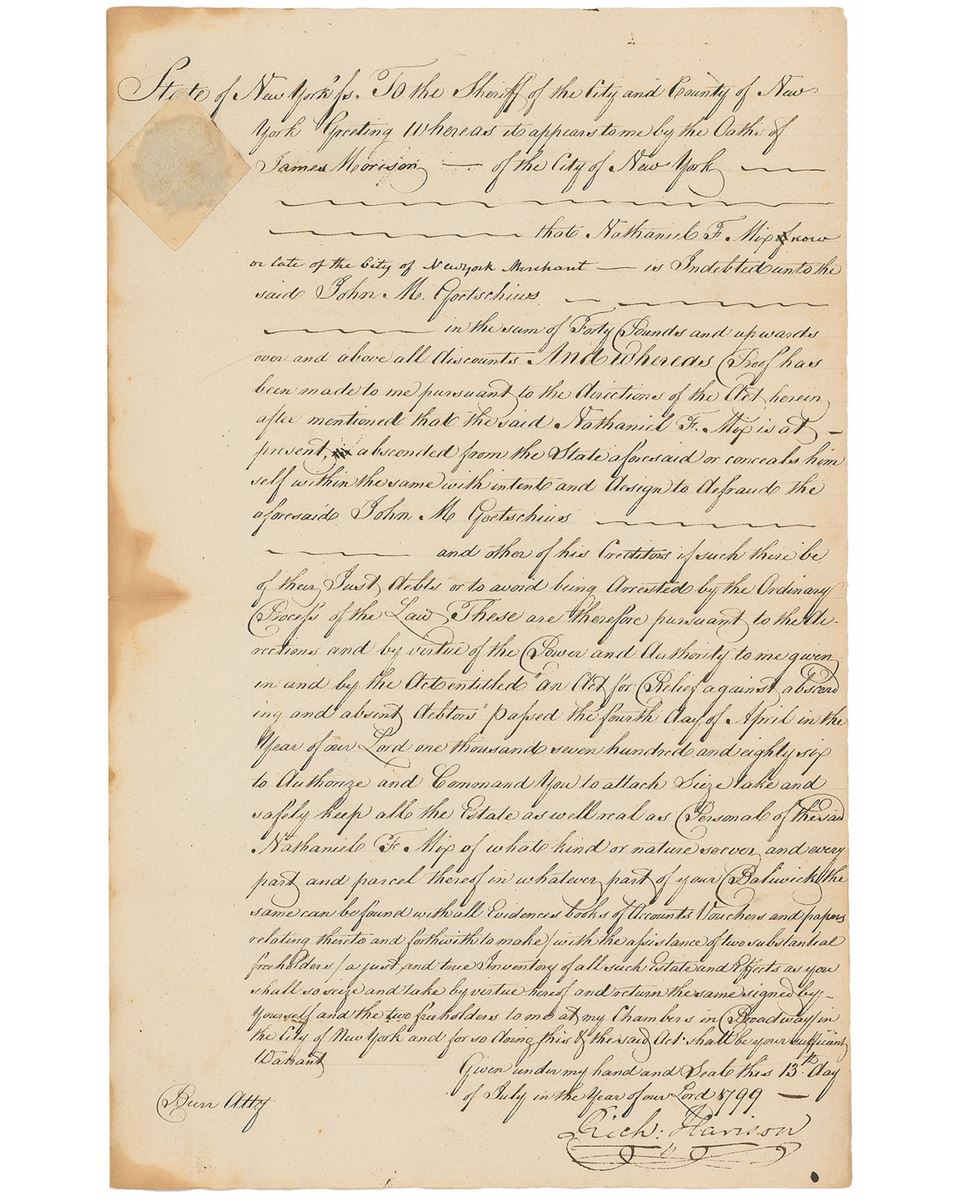 State of New York ss. To the Sheriff of the City and County of New
York Greeting Whereas it appears to me by the Oath of
James Morison — of the City of New York —
that Nathaniel F. Mix now
or late of the City of New York Merchant — is Indebted unto the
said John M. Goetschius —
in the sum of Forty Pounds and upwards
over and above all discounts And whereas Proof has
been made to me pursuant to the directions of the Act herein
after mentioned that the said Nathaniel F. Mix is at —
present, absconded from the State aforesaid or conceals him
self within the same with intent and design to defraud the
aforesaid John M Goetschius —
— and other of his Creditors if such there be
of their Just debts or to avoid being Arrested by the Ordinary
Process of the Law These are therefore pursuant to the di-
rections and by virtue of the Power and Authority to me given
in and by the Act entitled "an Act for Relief against abscond
ing and absent debtors" passed the fourth day of April in the
Year of our Lord one thousand seven hundred and eighty six
to Authorize and Command You to attach Sieze take and
safely keep all the Estate as well real as Personal of the said
Nathaniel F Mix of what kind or nature soever and every
part and parcel thereof in whatever part of your Baliwick the
same can be found with all Evidences books of Accounts Vouchers and papers
relating thereto and forthwith to make (with the assistance of two substantial
freeholders) a just and true Inventory of all such Estate and Effects as you
shall so seize and take by virtue hereof and return the same signed by-
yourself and the two freeholders to me at my Chambers in Broadway in
the City of New York and for so doing this & the said Act shall be your sufficient
Warrant
Given under my hand and Seal this 13th day
of July in the Year of our Lord 1799 —
Burr Atty
Rich: Harison